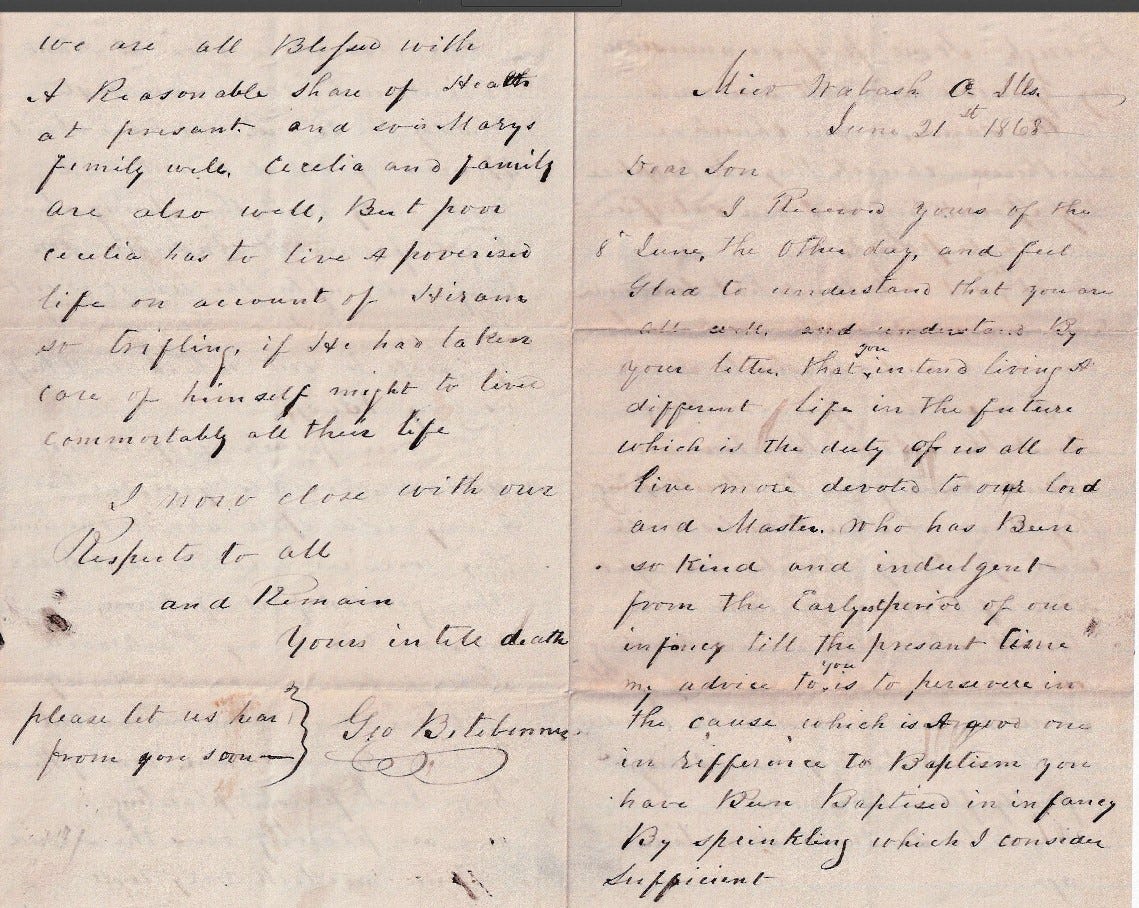 Mier Wabash Co Ills.
June 21st 1868
Dear Son
I Received yours of the
8" June, the Other day, and feel
Glad to understand that you are
all well, and understand By
your letter. that you intend living A
different life in the future
which is the duty of us all to
live more devoted to our lord
and Master. Who has Been
so Kind and indulgent
from the Earlyest period of our
infancy till the presant time
my advice to you is to persevere in
the cause which is A good one
in Rifference to Baptism you
have Been Baptised in infancy
By sprinkling which I consider
Sufficient
we are all Blessed with
A Reasonable share of Health
at presant. and so is Marys
Family well. Cecelia and family
are also well, But poor
Cecelia has to live A poverised
life on account of Hiram
so trifling. if He had taken
care of himself might to lived
commortably all their life
I now close with our
Respects to all
and Remain
Yours intell death
please let us hear
from you soon
Geo